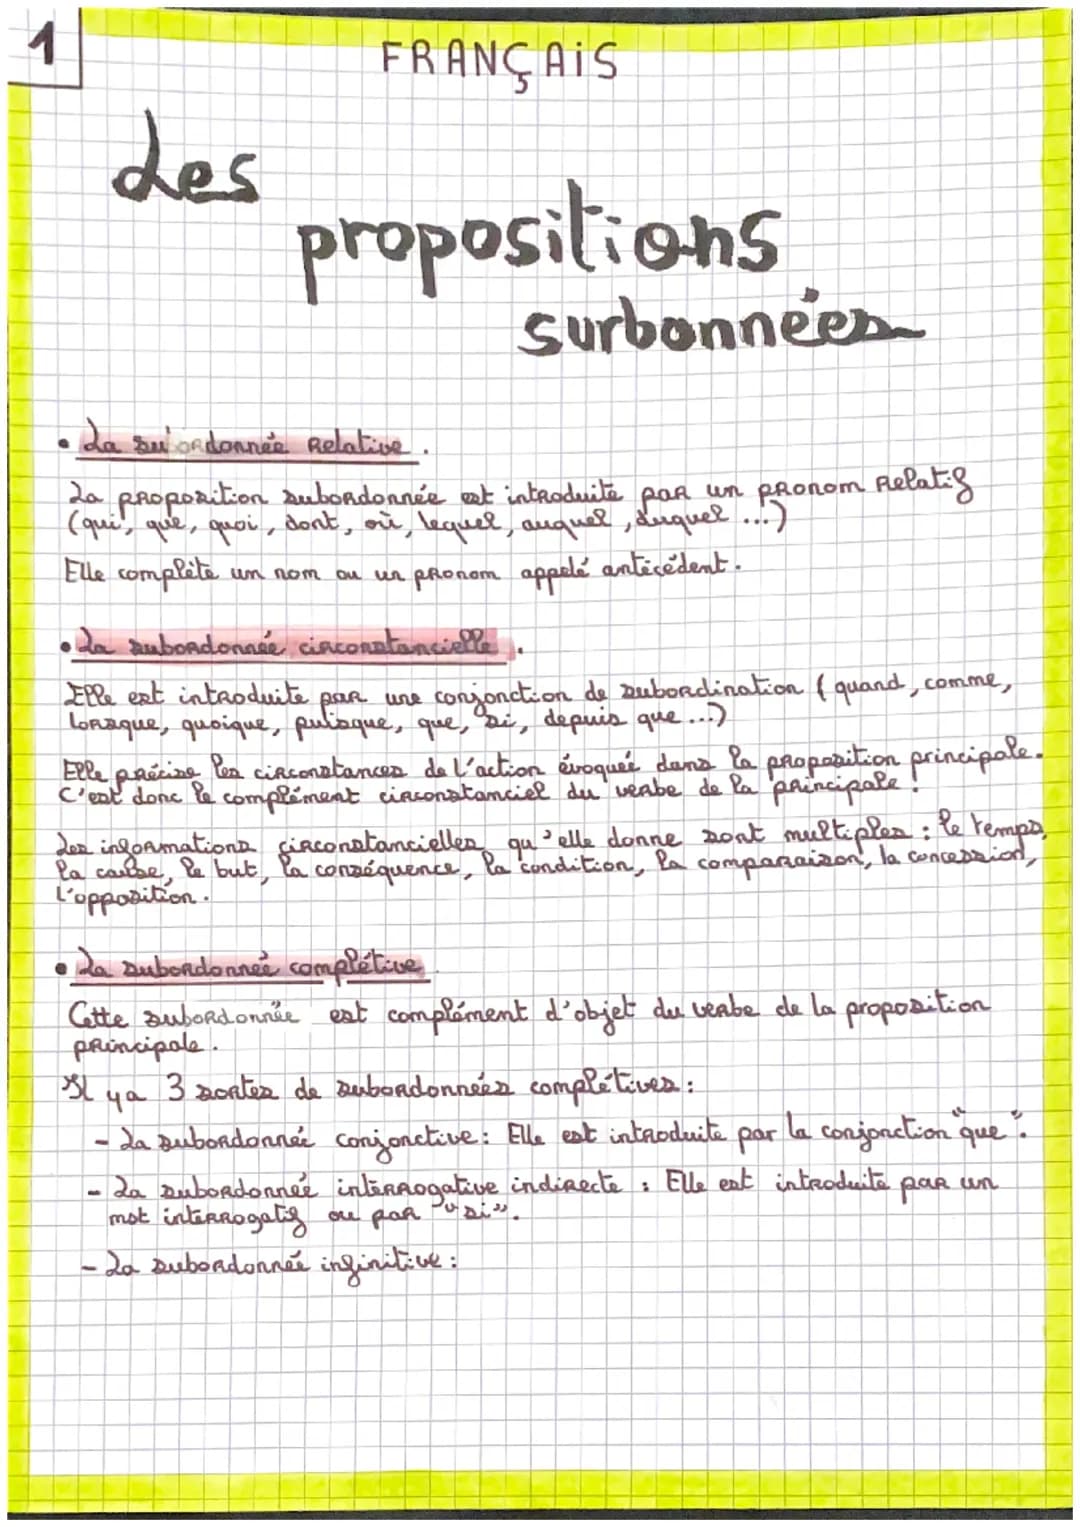 1
FRANÇAiS
Les
propositions
surbonnées
• La subordonnée Relative.
La proposition subordonnée est introduite par un pronom Relatif
(qui, que, quoi, dont, où, lequel, auquel, duquel ...)
Elle complète un nom ou un pronom appelé antécédent.
• La subordonnée circonstancielle.
Elle est introduite par une conjonction de subordination (quand, comme,
lorsque, quoique, puisque, que, si, depuis que ...)
Elle précise les circonstances de l'action évoqué dans la proposition principale.
C'est donc le complément circonstanciel du verbe de la principale.
Les informations circonstancielles qu'elle donne sont multiples : le temps,
la cause, le but, la conséquence, la condition, la comparaison, la concession,
l'opposition.
• La subordonnée complétive
Cette subordonnée est complément d'objet du verbe de la proposition
principale.
Il y a 3 sortes de subordonnées complétives :
- La subordonnée conjonctive : Elle est introduite par la conjonction "que".
- La subordonnée interrogative indirecte : Elle est introduite par un
mot interrogatif ou par "si".
- La subordonnée infinitive :